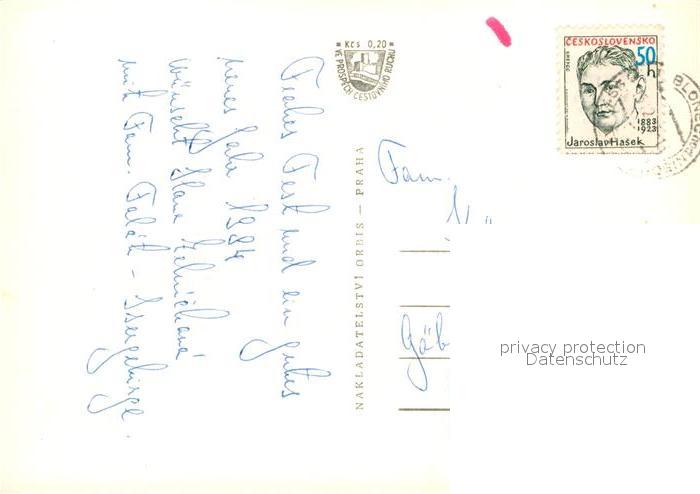 Kčs 0,20
VE PROSPĚCH CESTOVNÍHO RUCHU
ČESKOSLOVENSKO
50 h
1883
1923
Jaroslav Hašek
Frohes Fest und ein gutes
neues Jahr 1984
wünscht Hana
mit Fam. - Isergebirge.
NAKLADATELSTVÍ ORBIS — PRAHA
Fam.
privacy protection
Datenschutz